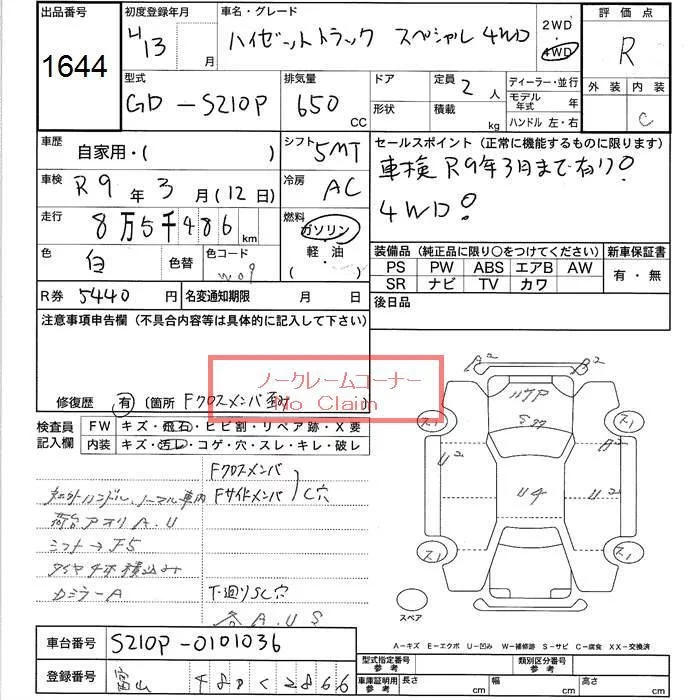 出品番号
1644
初度登録年月
H13 月
車名・グレード
ハイゼットトラック スペシャル 4WD
2WD
4WD
評価点
R
外装 内装
C
型式
GD-S210P
排気量
650 CC
ドア
形状
定員
2 人
積載
kg
ディーラー・並行
モデル年式 年
ハンドル 左・右
車歴
自家用・( )
シフト
5MT
車検
R9年3月(12日)
冷房
AC
走行
8万5千486km
燃料
ガソリン
軽・油
( )
色
白
色替
色コード
W09
R券 5440円
名変通知期限 月 日
セールスポイント(正常に機能するものに限ります)
車検R9年3月まで有り!
4WD!
装備品(純正品に限り○をつけてください)
PS PW ABS エアB AW
SR ナビ TV カワ
新車保証書
有・無
後日品
注意事項申告欄(不具合内容等は具体的に記入して下さい)
ノークレームコーナー
No Claim
修復歴 有 〔箇所 Fクロスメンバ
検査員記入欄
FW キズ・飛石・ヒビ割・リペア跡・X要
内装 キズ・汚レ・コゲ・穴・スレ・キレ・破レ
Fクロスメンバ
Fサイドメンバ
C穴
荷台アオリA.U
シフト→F5
タイヤ4本積込み
カミラーA
下廻りSC穴
各A.U.S
A2
B2
U2
U2
U4
スペア
A-キズ E-エクボ U-凹み W-補修跡 S-サビ C-腐食 XX-交換済
車台番号 S210P-0101036
登録番号 富山 480く2866
型式指定番号
参考
類別区分番号
参考
車庫証明用
参考
長さ cm 幅 cm 高さ cm